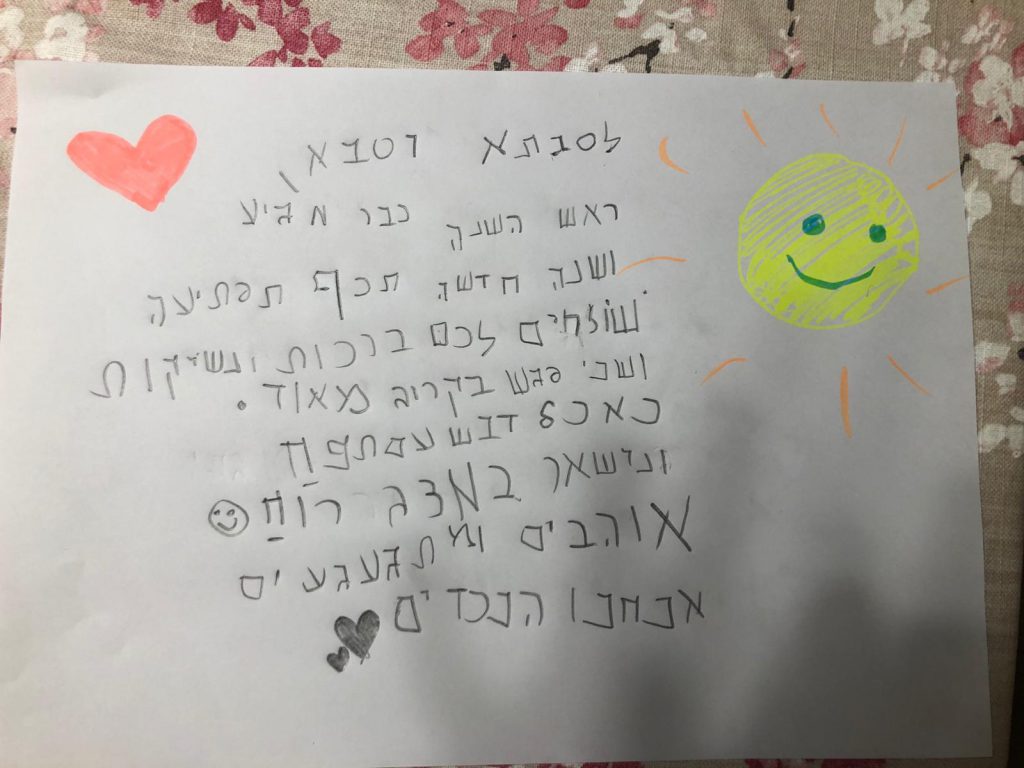 לסבתא וסבא,
ראש השנה כבר מגיע
ושנה חדשה תכף תפתיעה
שולחים לכם ברכות ונשיקות
ושניפגש בקרוב מאוד.
כאכל דבש עם תפוח
ונישאר במצב רוח
אוהבים ומתגעגעים
אנחנו הנכדים